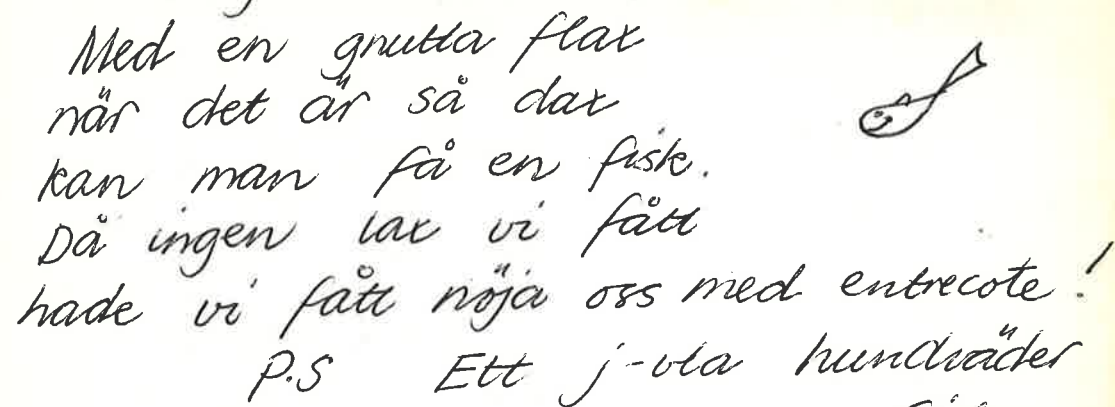 Med en gnutta flax
när det är så dax
kan man få en fisk.
Då ingen lax vi fått
hade vi fått nöja oss med entrecote!
P.S Ett j-vla hundväder